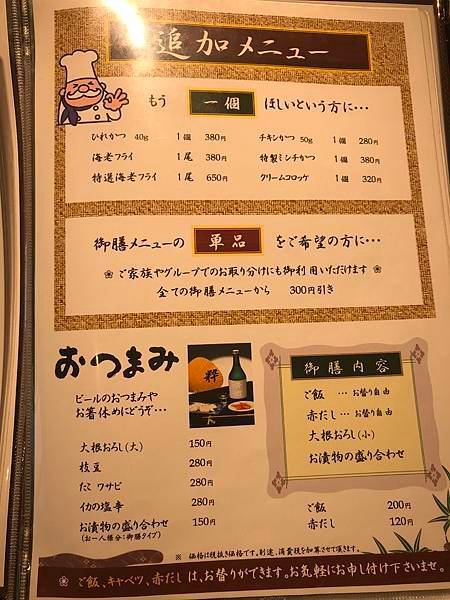 追加メニュー
もう 一個 ほしいという方に…
ひれかつ 40g 1個 380円
チキンかつ 50g 1個 280円
海老フライ 1尾 380円
特製ミンチかつ 1個 380円
特選海老フライ 1尾 650円
クリームコロッケ 1個 320円
御膳メニューの 単品 をご希望の方に…
❀ ご家族やグループでのお取り分けにも御利用いただけます ❀
全ての御膳メニューから 300円引き
おつまみ
ビールのおつまみや
お箸休めにどうぞ…
粋
大根おろし(大) 150円
枝豆 280円
たこワサビ 280円
イカの塩辛 280円
お漬物の盛り合わせ 150円
(お一人様分:御膳タイプ)
御膳内容
ご飯 … お替り自由
赤だし … お替り自由
大根おろし(小)
お漬物の盛り合わせ
ご飯 200円
赤だし 120円
※ 価格は税抜き価格です。別途、消費税を加算させて頂きます。
❀ ご飯、キャベツ、赤だし は、お替りができます。お気軽にお申し付け下さいませ。